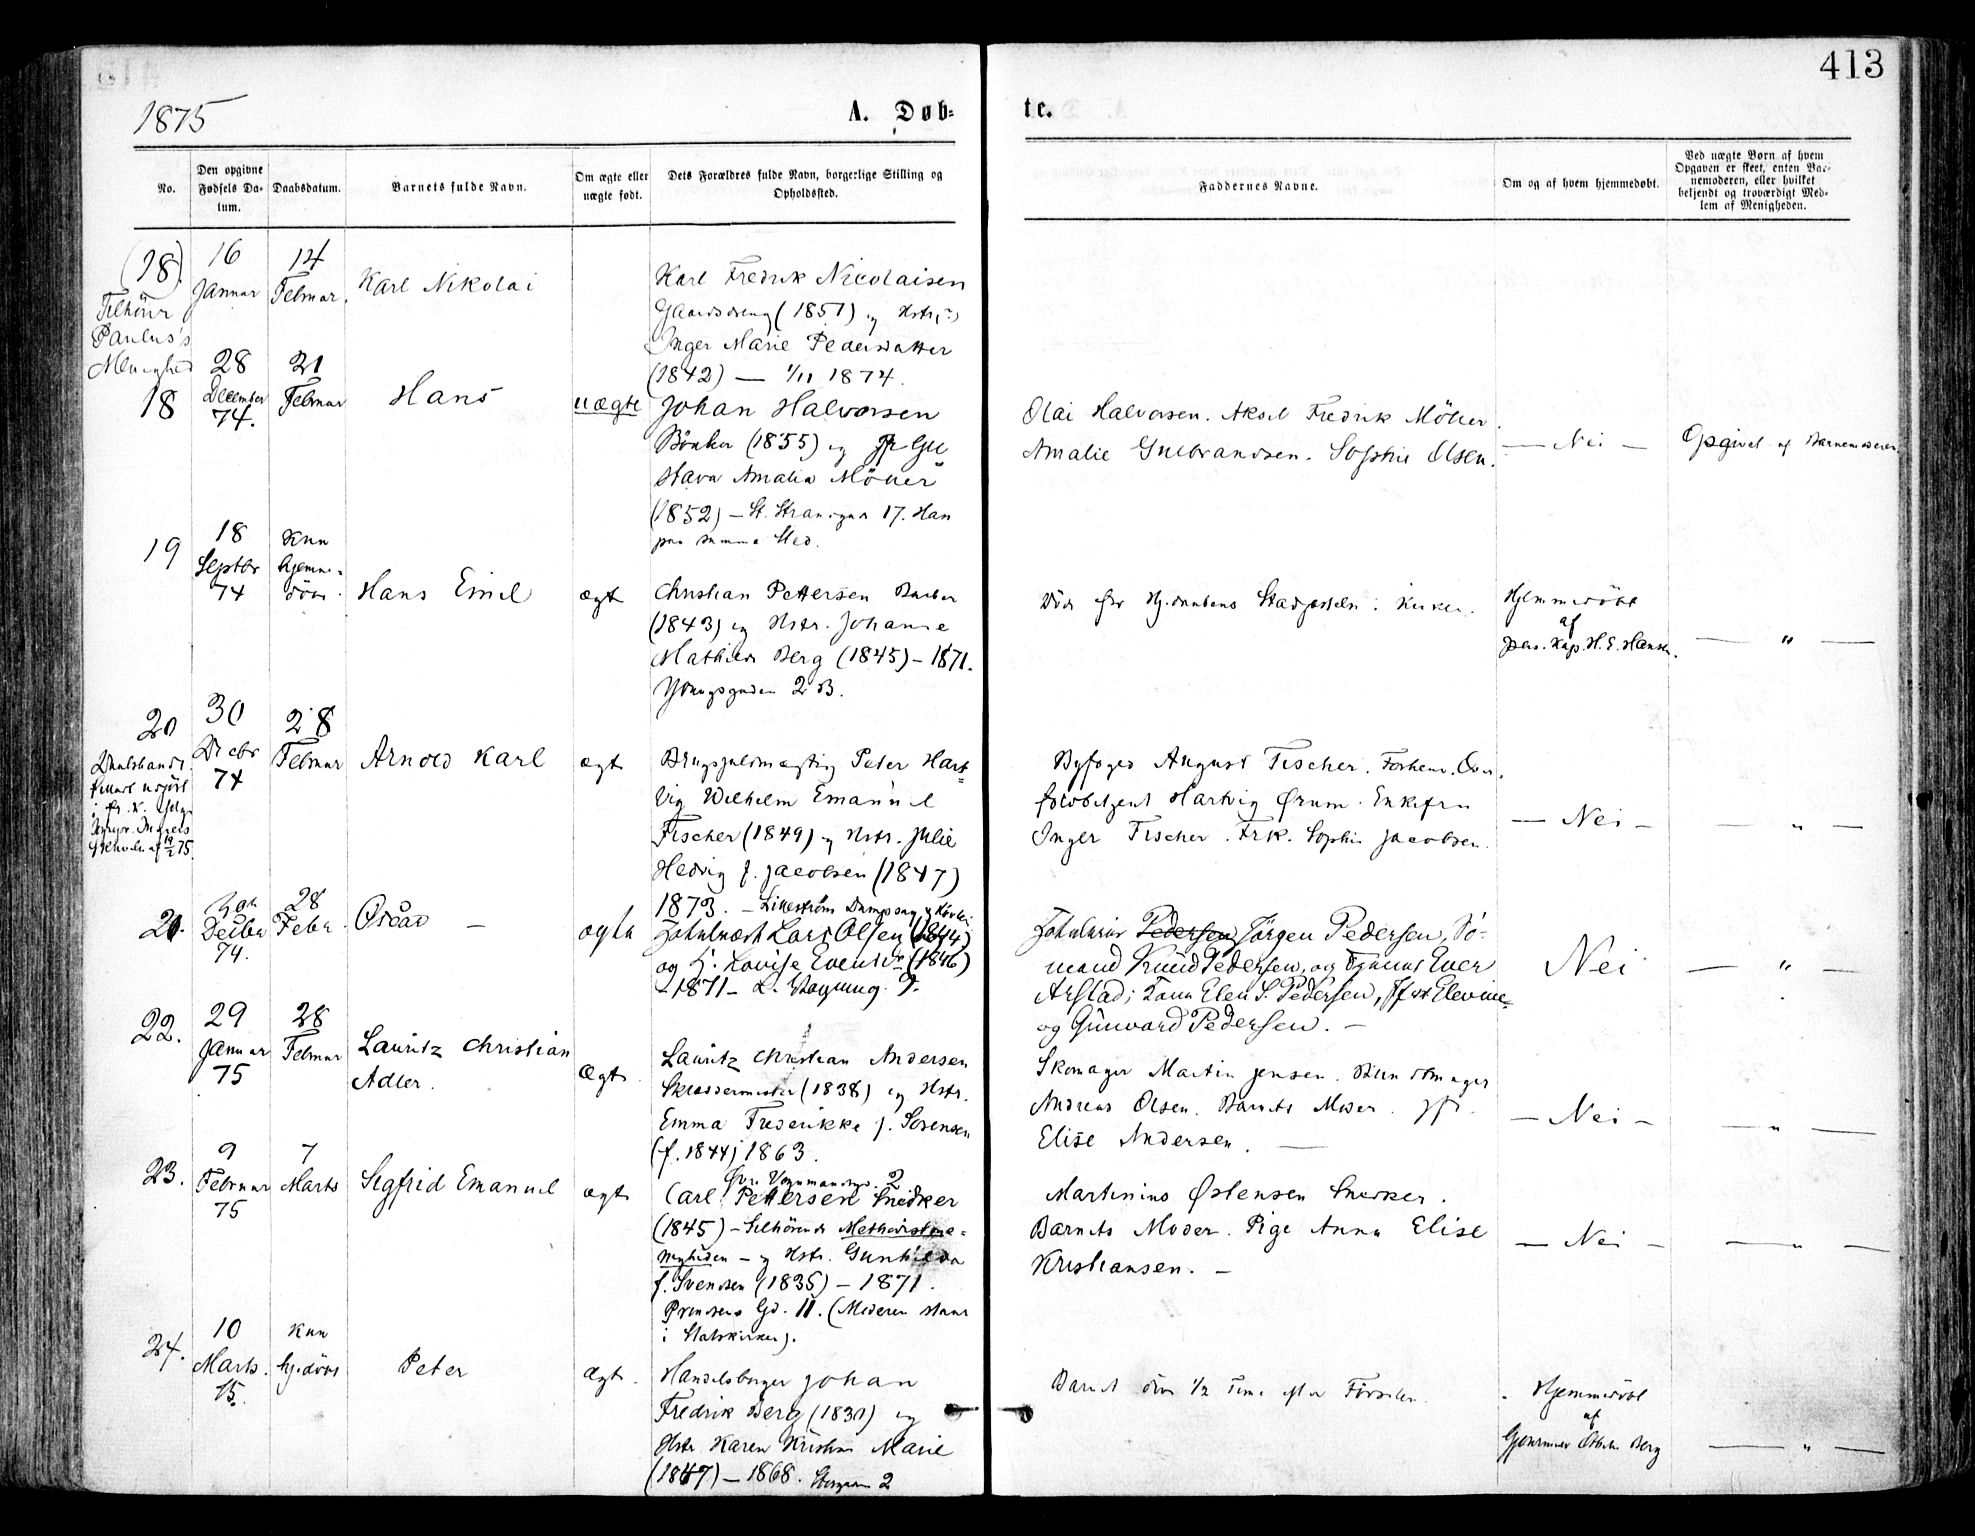 413
1875
A. Døb-
te.
No.
Den opgivne
Fødsels Da-
tum.
Daabsdatum.
Barnets fulde Navn.
Om ægte eller
uægte født.
Dets Forældres fulde Navn, borgerlige Stilling og
Opholdssted.
Faddernes Navne.
Om og af hvem hjemmedøbt.
Ved uægte Børn af hvem
Opgaven er skeet, enten Bar-
nemoderen, eller hvilket
bekjendt og troværdigt Med-
lem af Menigheden.
(18)
Tilhører
Paulus's
Menighed
16
Januar
14
Februar.
Karl Nikolai
Karl Fredrik Nicolaisen
(1851) og Hstr.
Inger Marie Pedersdatter
(1842) — 1/11 1874.
18
28
December
74.
21
Februar
Hans
uægte
Johan Halvorsen
(1855) og Gu
stava Amalia Möller
(1852) – St. 17. Han
paa samme Sted.
Olai Halvorsen. Aksel Fredrik Möller.
Amalie Gulbrandsen. Sophie Olsen.
— Nei —
Opgivet af Barnemoderen
19
18
Septbr
74
Kun
hjemme-
döbt.
Hans Emil
ægt
Christian Pettersen
(1843) og Hstr. Johanne
Mathilde Berg (1845) – 1871.
2 B.
Död før Stadfæstelse i Kirken.
Hjemmedöbt
af
H. E. Hansen.
— " —
20
30
Decbr
74
28
Februar
Arnold Karl
ægt
Peter Hart-
vig Wilhelm Emanuel
Fischer (1849) og Hstr. Julie
Hedvig f. Jacobsen (1847)
1873. – Lilleström
Byfoged August Fischer.
Hartvig Ørum. Enkefru
Inger Fischer. Frk. Sophie Jacobsen.
— Nei —
— " —
21.
30te
Decbr
74.
28
Febr.
Oscar –
ægte
Lars Olsen (1844)
og H. Lovise Evensdr. (1846)
– 1871 –
Pedersen Jörgen Pedersen, Sö-
mand Knud Pedersen, og
Elen S. Pedersen,
og Gunvard Pedersen. –
Nei
— " —
22.
29
Januar
75
28
Februar
Lauritz Christian
Adler.
Ægt.
Lauritz Christian Andersen
Skræddermester (1838) og Hstr.
Emma Frederikke f. Sörensen
(f. 1844) 1863.
2
Skomager Martin Jensen.
Andreas Olsen. Barnets Moder. Jfr.
Elise Andersen. —
— Nei —
— " —
23.
9
Februar
75
7
Marts
Sigfrid Emanuel
ægt
Carl Pettersen Snedker
(1845) – tilhörende Methodistme-
nigheden – og Hstr. Gunhilda
f. Svendsen (1835) – 1871.
Prindsens Gd. 11. (Moderen staar
i Statskirken).
Martinius Østensen Snedker.
Barnets Moder. Pige Anna Elise
Kristiansen. –
— Nei —
— " —
24.
10
Marts.
75.
Kun
hj.döbt
Peter
Ægt.
Handelsborger Johan
Fredrik Berg (1831) og
Hstr. Karen Kristine Marie
(1847) – 1868. 2
Barnet döde 1/2 Time efter Födselen.
Hjemmedöbt
af
Berg
— " —